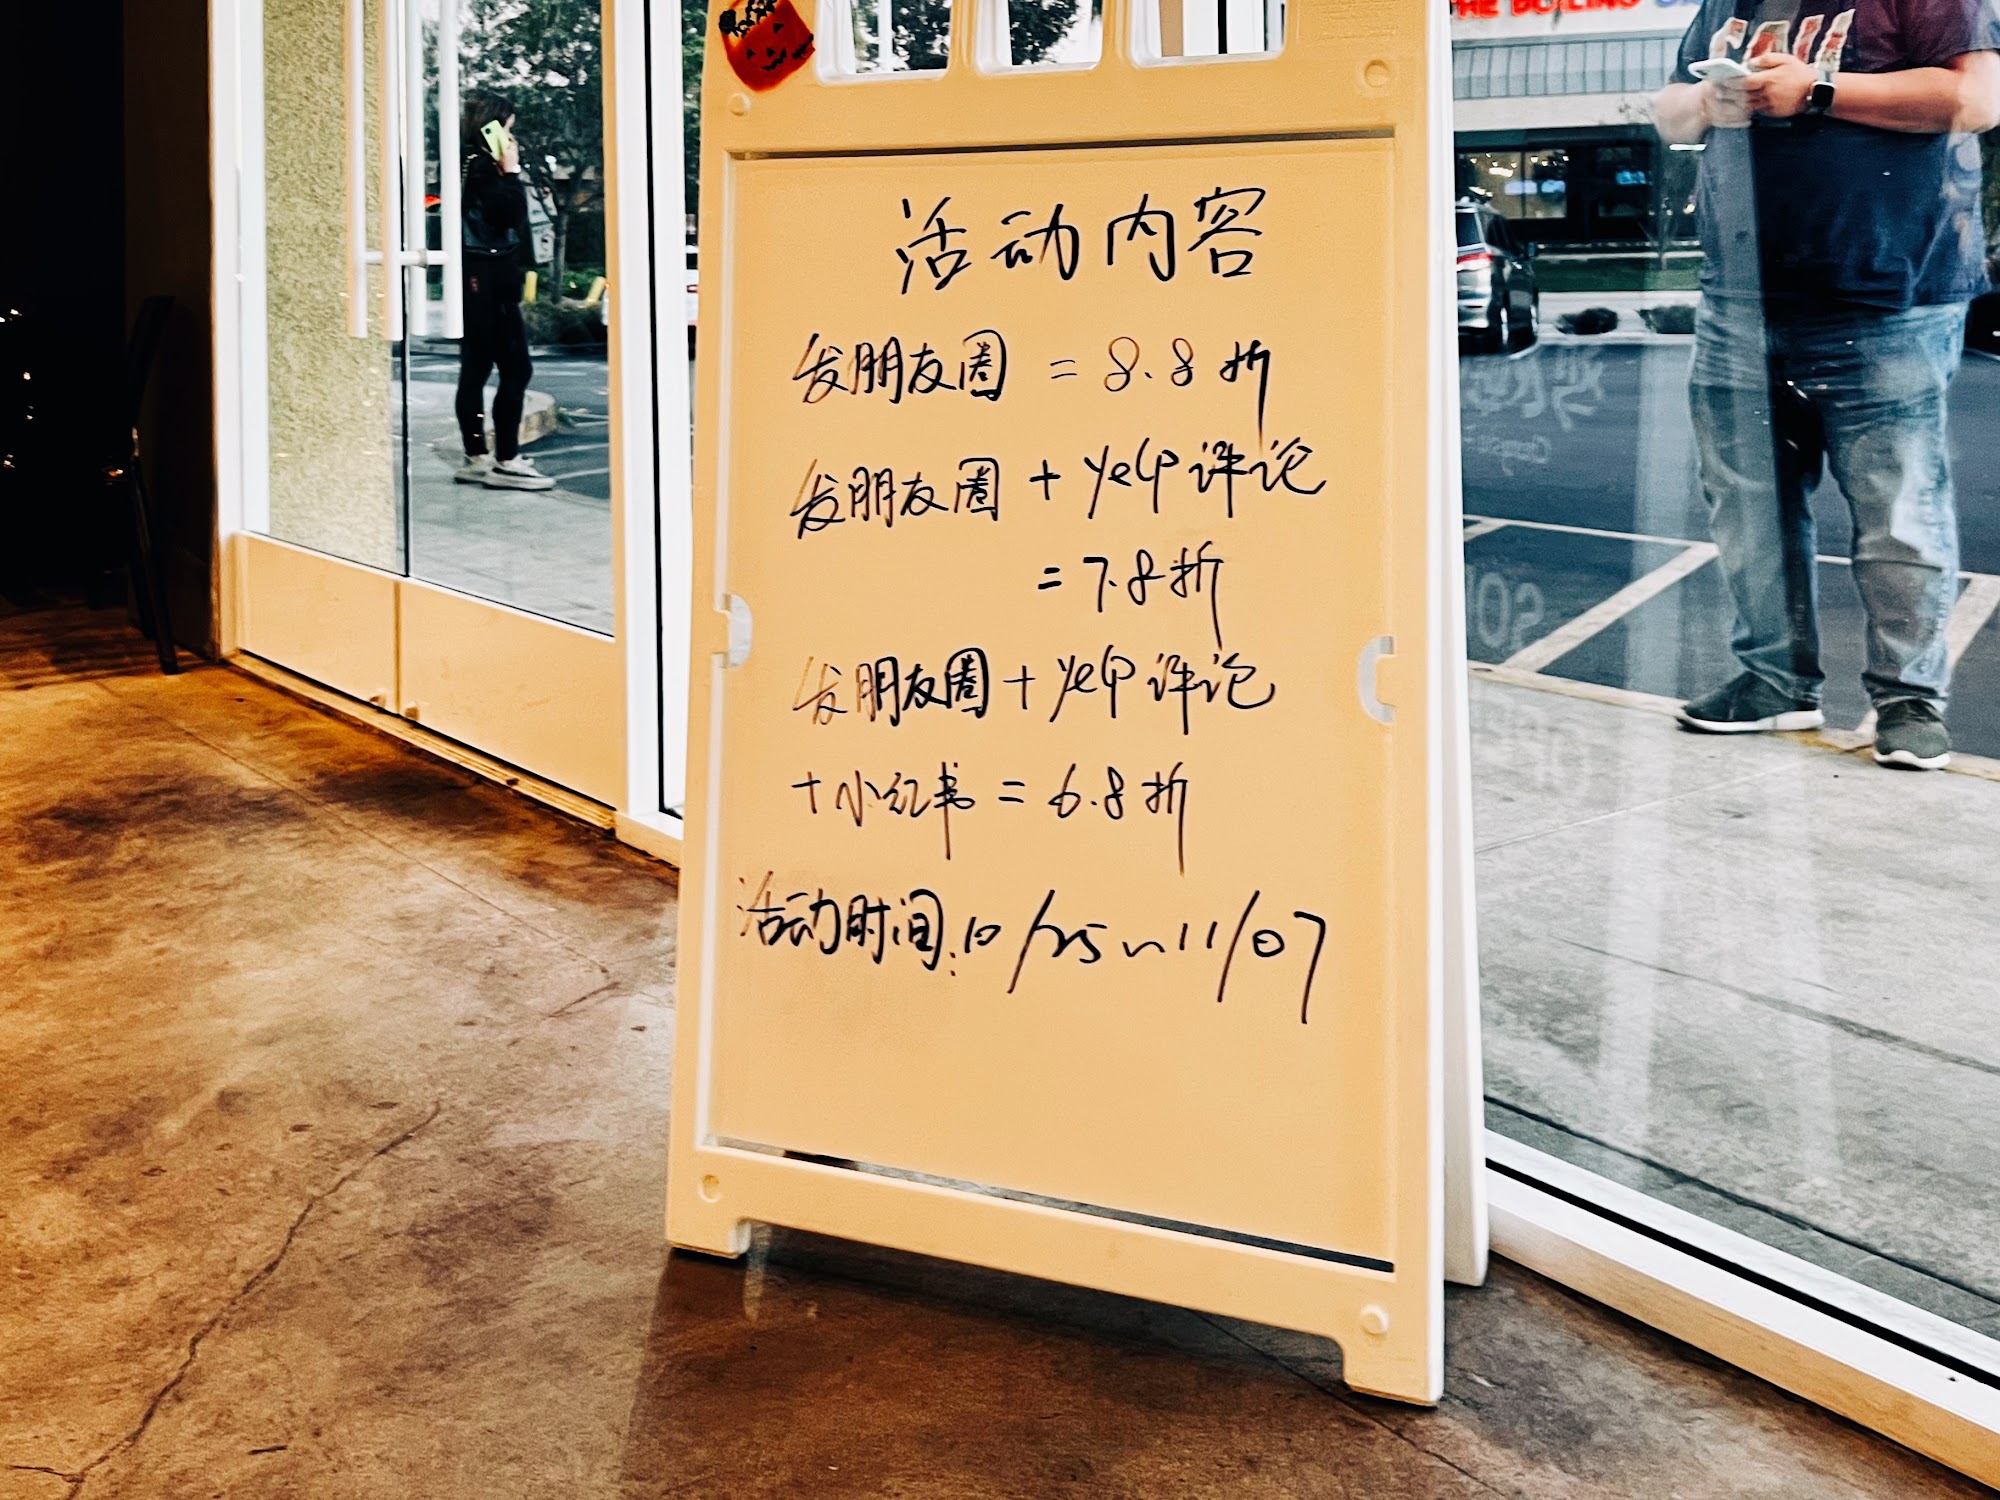 THE BOILING
活动内容
发朋友圈 = 8.8折
发朋友圈 + yelp评论
= 7.8折
发朋友圈 + yelp评论
+ 小红书 = 6.8折
活动时间: 10/25~11/07